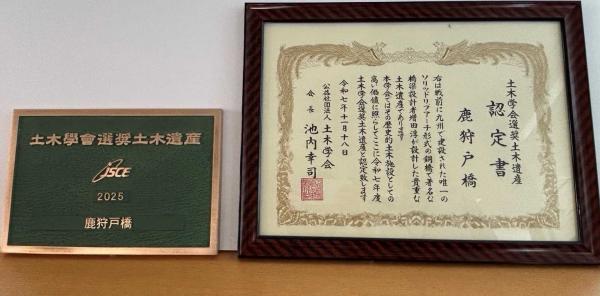 土木學會選奨土木遺産
JSCE
2025
鹿狩戸橋
土木学会選奨土木遺産
認定書
鹿狩戸橋
右は戦前に九州で建設された唯一の
ソリッドリブアーチ形式の鋼橋で著名な
橋梁設計者増田淳が設計した貴重な
土木遺産であります
本学会ではその歴史的土木施設としての
高い価値に照らしてここに令和七年度
土木学会選奨土木遺産と認定致します
令和七年十一月十八日
公益社団法人 土木学会
会長 池内幸司